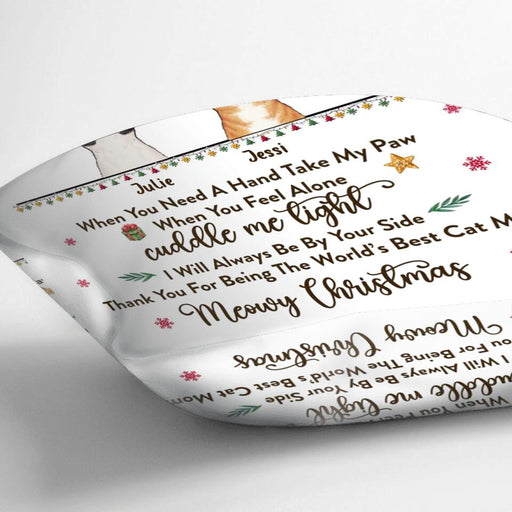 Julie
Jessi
When You Need A Hand Take My Paw
When You Feel Alone
cuddle me tight
I Will Always Be By Your Side
Thank You For Being The World's Best Cat M
Meowy Christmas
Meowy Christmas
ou For Being The World's Best Cat Mom
I Will Always Be By Your Side
cuddle me tight
When You Feel